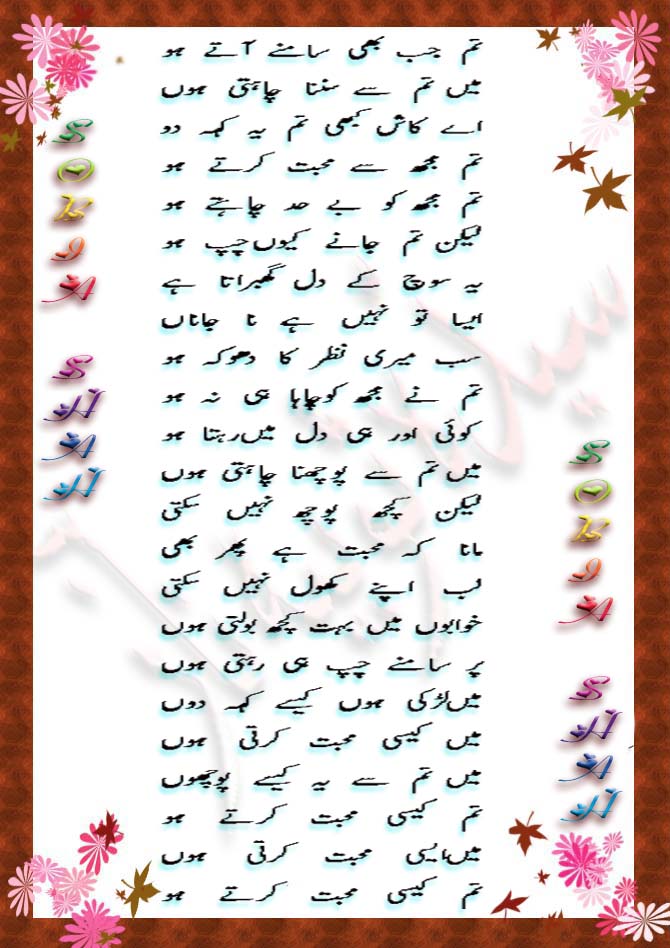 تم جب بھی سامنے آتے ہو
میں تم سے سننا چاہتی ہوں
اے کاش کبھی تم یہ کہہ دو
تم مجھ سے محبت کرتے ہو
تم مجھ کو بے حد چاہتے ہو
لیکن تم جانے کیوں چپ ہو
یہ سوچ کے دل گھبراتا ہے
ایسا تو نہیں ہے نا جاناں
سب میری نظر کا دھوکہ ہو
تم نے مجھ کوچاہا ہی نہ ہو
کوئی اور ہی دل میں رہتا ہو
میں تم سے پوچھنا چاہتی ہوں
لیکن کچھ پوچھ نہیں سکتی
مانا کہ محبت ہے پھر بھی
لب اپنے کھول نہیں سکتی
خوابوں میں بہت کچھ بولتی ہوں
پر سامنے چپ ہی رہتی ہوں
میں لڑکی ہوں کیسے کہہ دوں
میں کیسی محبت کرتی ہوں
میں تم سے یہ کیسے پوچھوں
تم کیسی محبت کرتے ہو
میں ایسی محبت کرتی ہوں
تم کیسی محبت کرتے ہو
SOKIA SHAH
SOKIA SHAH